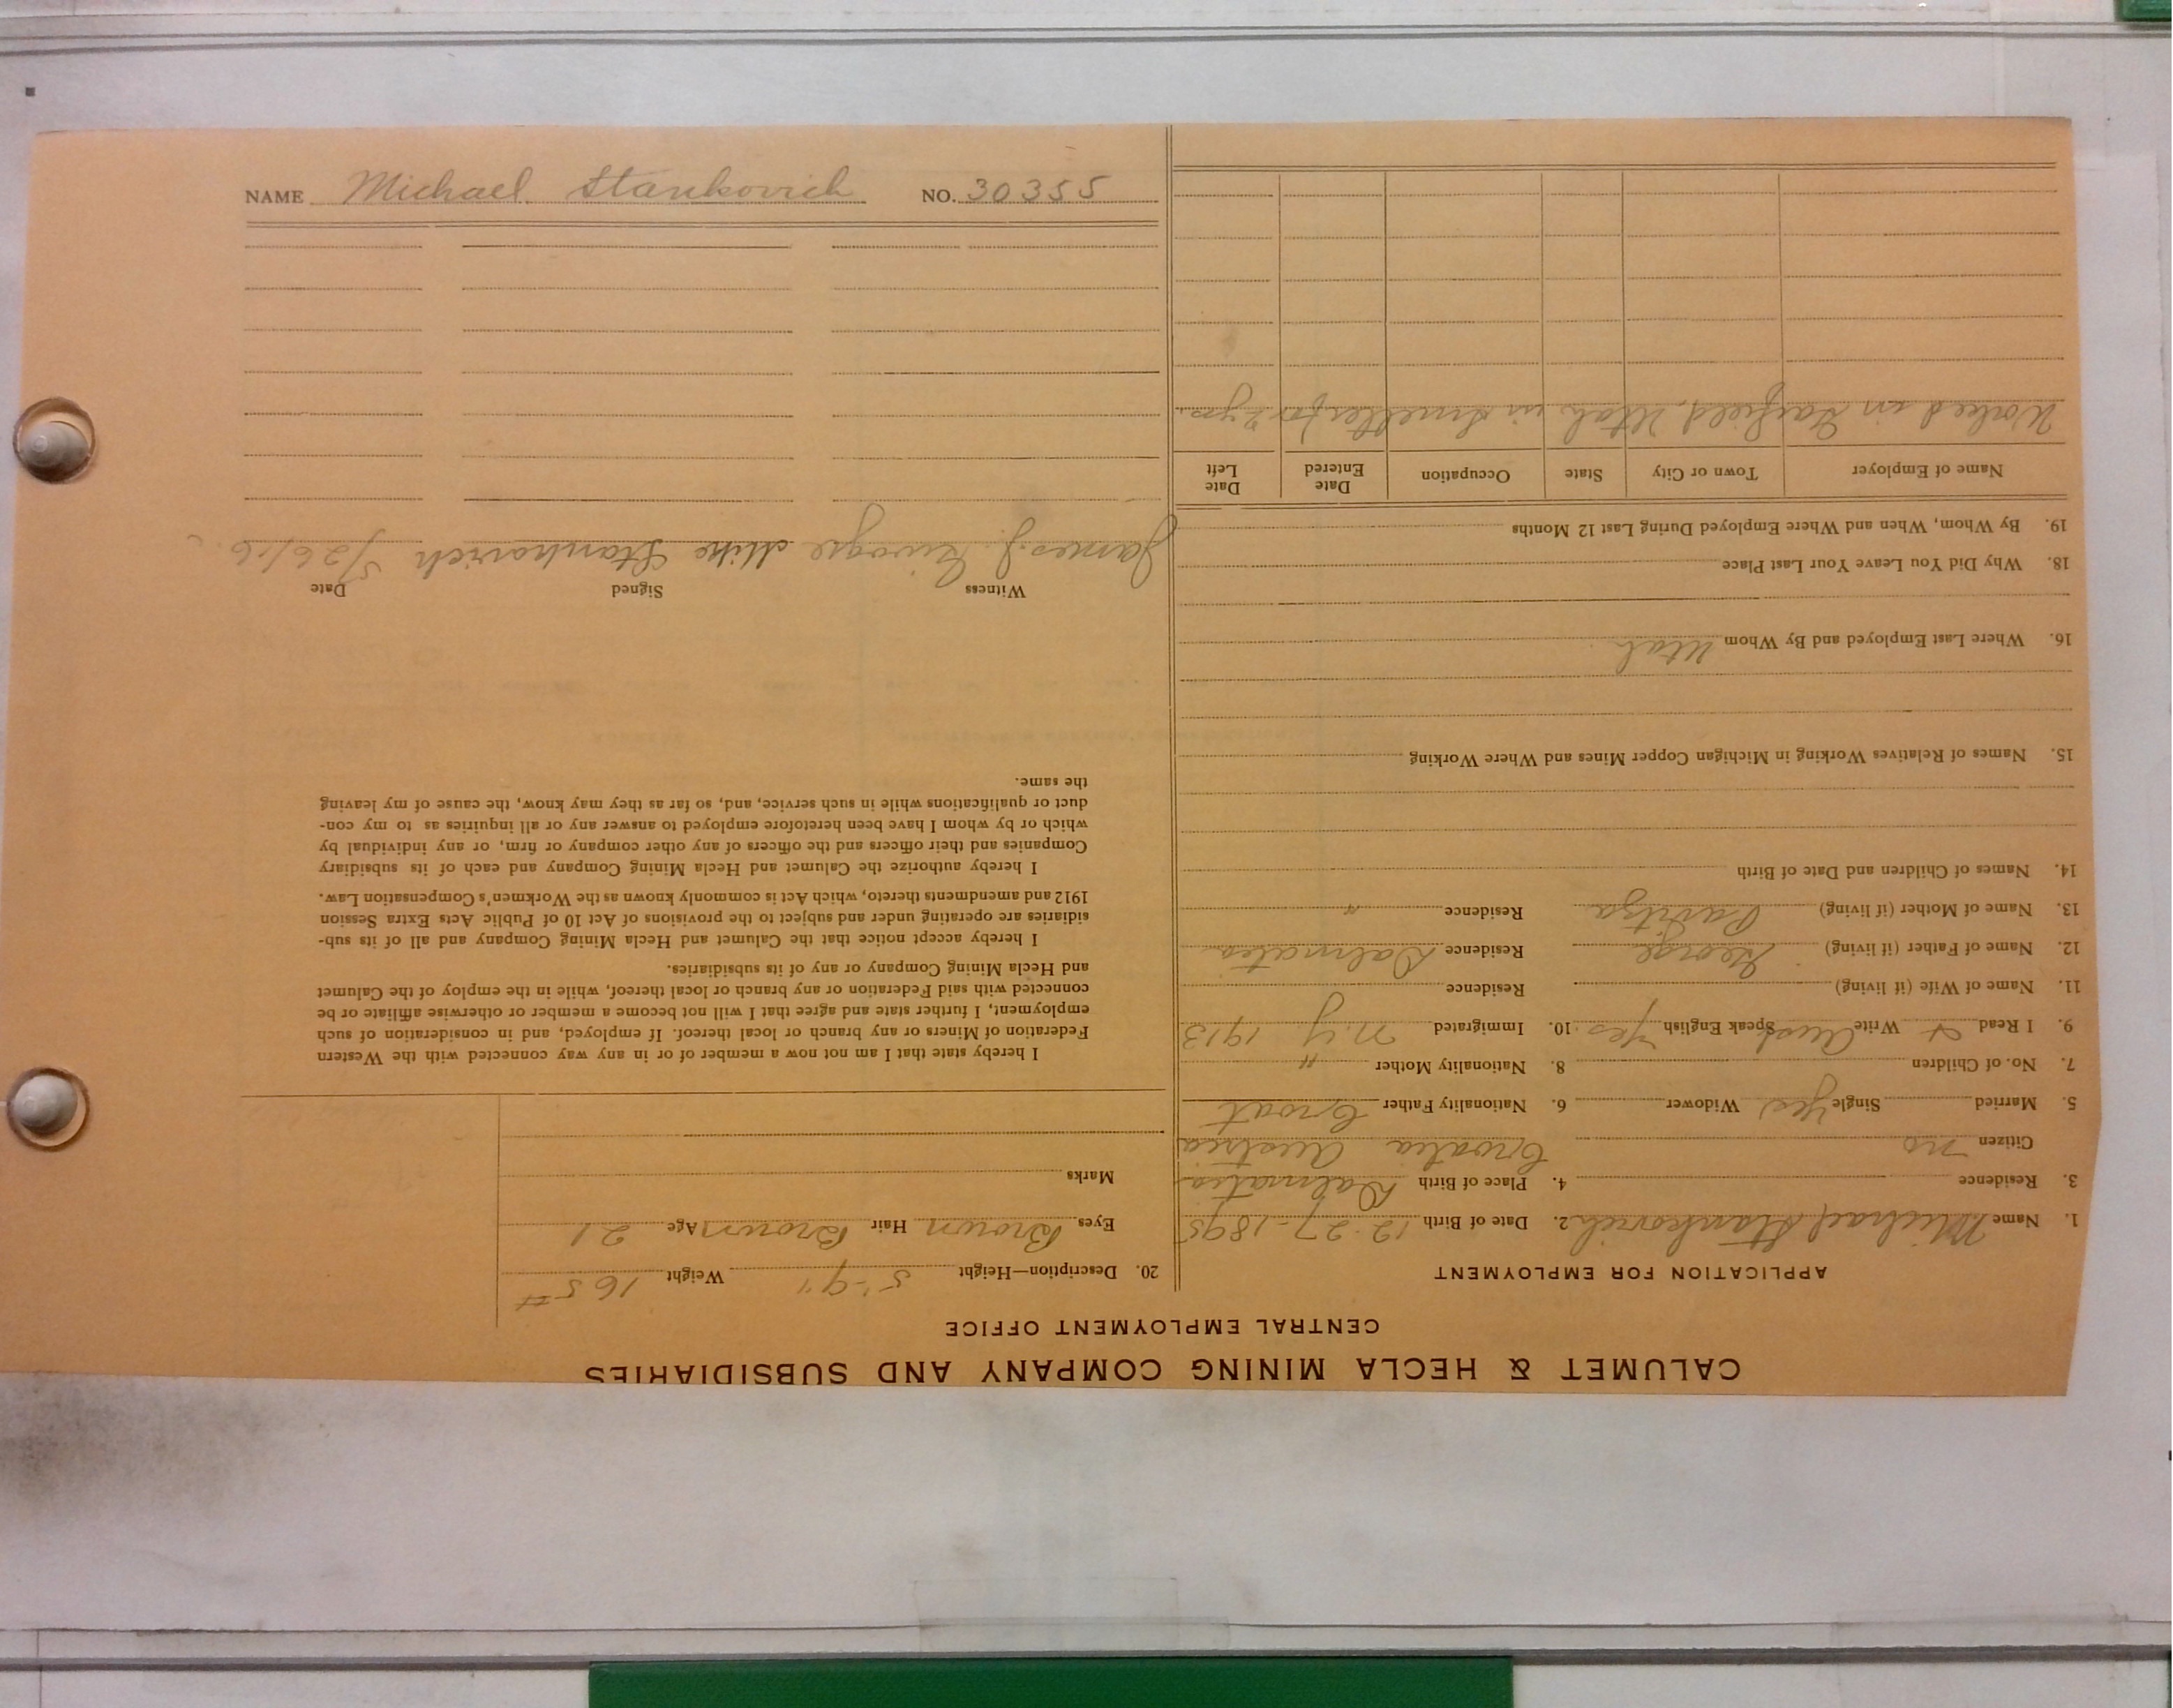 CALUMET & HECLA MINING COMPANY AND SUBSIDIARIES
CENTRAL EMPLOYMENT OFFICE
APPLICATION FOR EMPLOYMENT
1. Name Michael Stankovich 2. Date of Birth 12-27-1895
3. Residence 4. Place of Birth Dalmatia
Citizen no Croatia Austria
5. Married Single Yes Widower 6. Nationality Father Croat
7. No. of Children 8. Nationality Mother "
9. I Read & Write Aust Speak English Yes 10. Immigrated N.Y. 1913
11. Name of Wife (if living) Residence
12. Name of Father (if living) George Residence Dalmatia
13. Name of Mother (if living) Residence "
14. Names of Children and Date of Birth
15. Names of Relatives Working in Michigan Copper Mines and Where Working
16. Where Last Employed and By Whom Utah
18. Why Did You Leave Your Last Place
19. By Whom, When and Where Employed During Last 12 Months
Name of Employer Town or City State Occupation Date Entered Date Left
Worked in Garfield, Utah in Smelter for 2 yrs.
20. Description—Height 5'-9" Weight 165#
Eyes Brown Hair Brown Age 21
Marks
I hereby state that I am not now a member of or in any way connected with the Western
Federation of Miners or any branch or local thereof. If employed, and in consideration of such
employment, I further state and agree that I will not become a member or otherwise affiliate or be
connected with said Federation or any branch or local thereof, while in the employ of the Calumet
and Hecla Mining Company or any of its subsidiaries.
I hereby accept notice that the Calumet and Hecla Mining Company and all of its sub-
sidiaries are operating under and subject to the provisions of Act 10 of Public Acts Extra Session
1912 and amendments thereto, which Act is commonly known as the Workmen's Compensation Law.
I hereby authorize the Calumet and Hecla Mining Company and each of its subsidiary
Companies and their officers and the officers of any other company or firm, or any individual by
which or by whom I have been heretofore employed to answer any or all inquiries as to my con-
duct or qualifications while in such service, and, so far as they may know, the cause of my leaving
the same.
Witness Signed Date
James J. Mike Stankovich 5/26/16
NAME Michael Stankovich NO. 30355